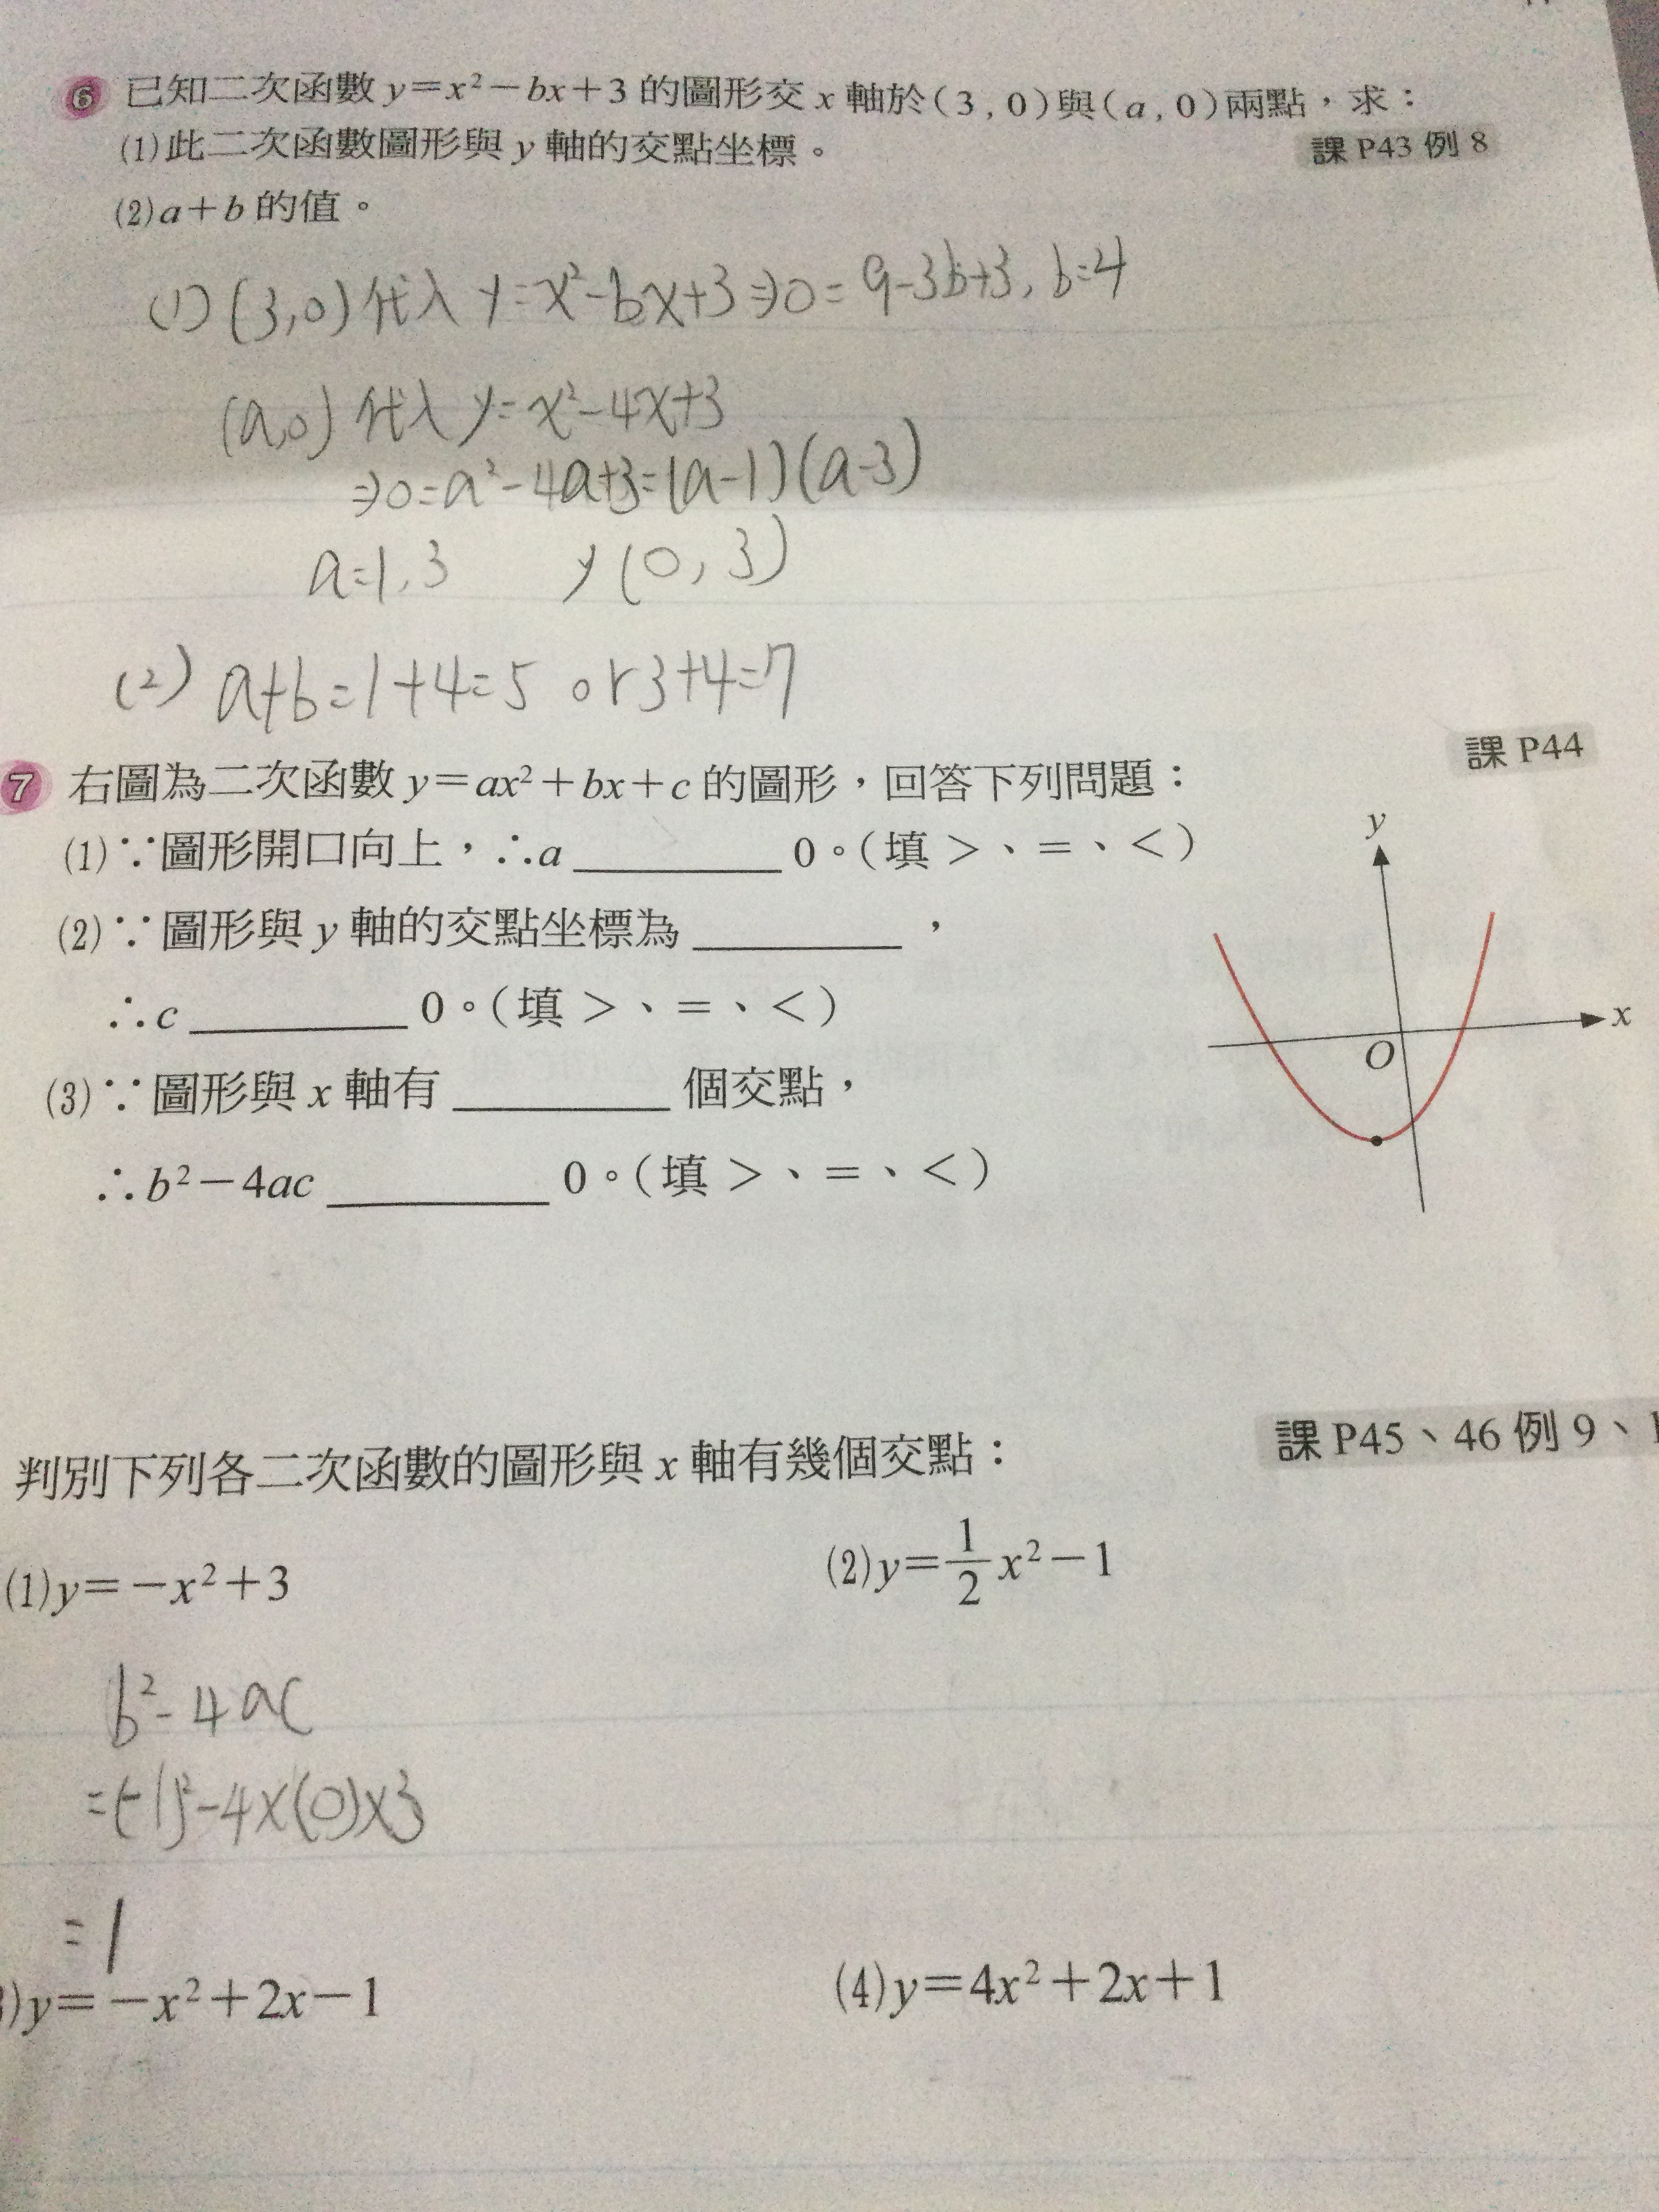 6 已知二次函數 y=x²-bx+3 的圖形交 x 軸於(3,0)與(a,0)兩點,求:
(1)此二次函數圖形與 y 軸的交點坐標。 課 P43 例 8
(2)a+b 的值。
(1) (3,0) 代入 y=x²-bx+3⇒0=9-3b+3, b=4
(a,0) 代入 y=x²-4x+3
⇒0=a²-4a+3=(a-1)(a-3)
a=1,3 y(0,3)
(2) a+b=1+4=5 or 3+4=7
課 P44
7 右圖為二次函數 y=ax²+bx+c 的圖形,回答下列問題:
(1)∵圖形開口向上,∴a ________ 0。(填 >、=、<)
(2)∵圖形與 y 軸的交點坐標為 ________ ,
∴c ________ 0。(填 >、=、<)
(3)∵圖形與 x 軸有 ________ 個交點,
∴b²-4ac ________ 0。(填 >、=、<)
y
x
O
課 P45、46 例 9、1
判別下列各二次函數的圖形與 x 軸有幾個交點:
(1)y=-x²+3 (2)y=1/2 x²-1
b²-4ac
=(-1)²-4×(0)×3
=1
)y=-x²+2x-1 (4)y=4x²+2x+1